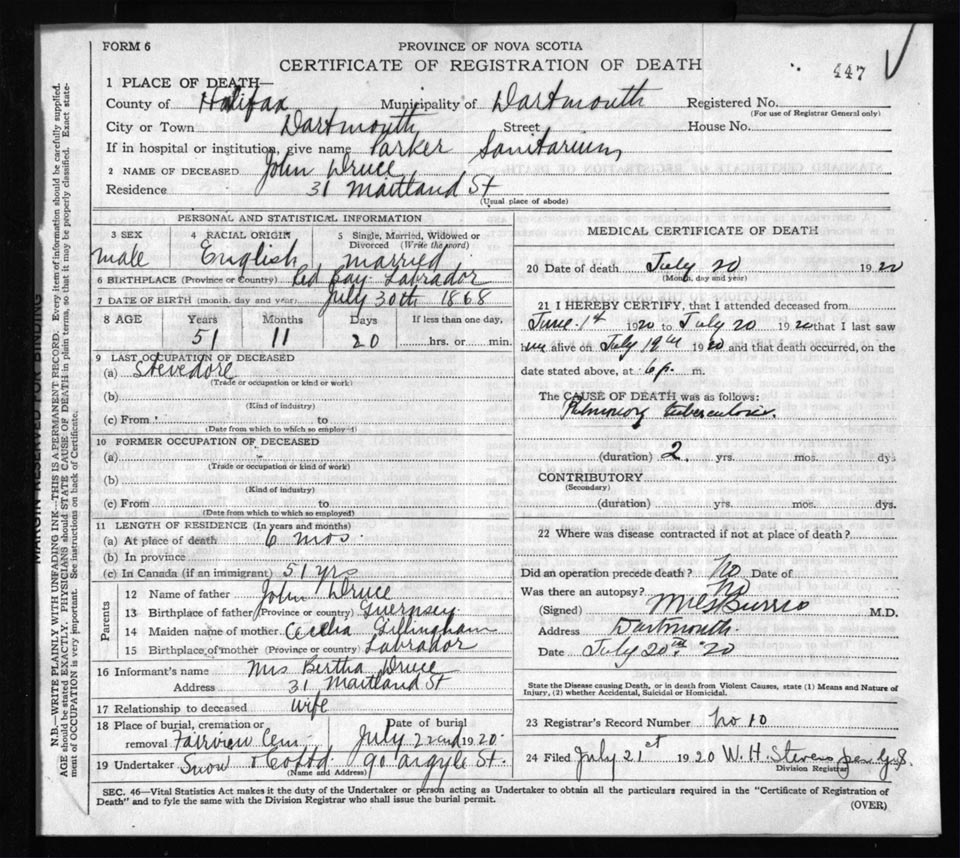 FORM 6
PROVINCE OF NOVA SCOTIA
CERTIFICATE OF REGISTRATION OF DEATH
447
1 PLACE OF DEATH—
County of Halifax Municipality of Dartmouth Registered No.
(For use of Registrar General only)
City or Town Dartmouth Street House No.
If in hospital or institution, give name Parker Sanitarium
2 NAME OF DECEASED John Druce
Residence 31 Maitland St
(Usual place of abode)
PERSONAL AND STATISTICAL INFORMATION
3 SEX 4 RACIAL ORIGIN 5 Single, Married, Widowed or Divorced (Write the word)
male English married
6 BIRTHPLACE (Province or Country) Red Bay Labrador
7 DATE OF BIRTH (month, day and year) July 30th 1868
8 AGE Years Months Days If less than one day,
51 11 20 hrs. or min.
9 LAST OCCUPATION OF DECEASED
(a) Stevedore
(Trade or occupation or kind of work)
(b)
(Kind of industry)
(c) From to
(Date from which to which so employed)
10 FORMER OCCUPATION OF DECEASED
(a)
(Trade or occupation or kind of work)
(b)
(Kind of industry)
(c) From to
(Date from which to which so employed)
11 LENGTH OF RESIDENCE (In years and months)
(a) At place of death 6 mos
(b) In province
(c) In Canada (if an immigrant) 51 yrs
Parents
12 Name of father John Druce
13 Birthplace of father (Province or country) Guernsey
14 Maiden name of mother Cecelia Gillingham
15 Birthplace of mother (Province or country) Labrador
16 Informant's name Mrs Bertha Druce
Address 31 Maitland St
17 Relationship to deceased wife
18 Place of burial, cremation or removal Fairview Cem Date of burial July 22nd 1920
19 Undertaker Snow & Co Ltd 90 Argyle St.
(Name and Address)
MEDICAL CERTIFICATE OF DEATH
20 Date of death July 20 1920
(Month, day and year)
21 I HEREBY CERTIFY, that I attended deceased from
June 1st 1920 to July 20 1920 that I last saw
him alive on July 19th 1920 and that death occurred, on the
date stated above, at 6 p. m.
The CAUSE OF DEATH was as follows:
Pulmonary tuberculosis.
(duration) 2 yrs. mos. dys
CONTRIBUTORY
(Secondary)
(duration) yrs. mos. dys.
22 Where was disease contracted if not at place of death?
Did an operation precede death? No Date of
Was there an autopsy? No
(Signed) M.D.
Address Dartmouth.
Date July 20th '20
State the Disease causing Death, or in death from Violent Causes, state (1) Means and Nature of
Injury, (2) whether Accidental, Suicidal or Homicidal.
23 Registrar's Record Number No 10
24 Filed July 21st 1920 W. H. Stevens
Division Registrar
SEC. 46—Vital Statistics Act makes it the duty of the Undertaker or person acting as Undertaker to obtain all the particulars required in the "Certificate of Registration of
Death" and to fyle the same with the Division Registrar who shall issue the burial permit.
(OVER)
MARGIN RESERVED FOR BINDING
N.B.—WRITE PLAINLY WITH UNFADING INK—THIS IS A PERMANENT RECORD. Every item of information should be carefully supplied.
AGE should be stated EXACTLY. PHYSICIANS should STATE CAUSE OF DEATH in plain terms, so that it may be properly classified. Exact state-
ment of OCCUPATION is very important. See instructions on back of Certificate.